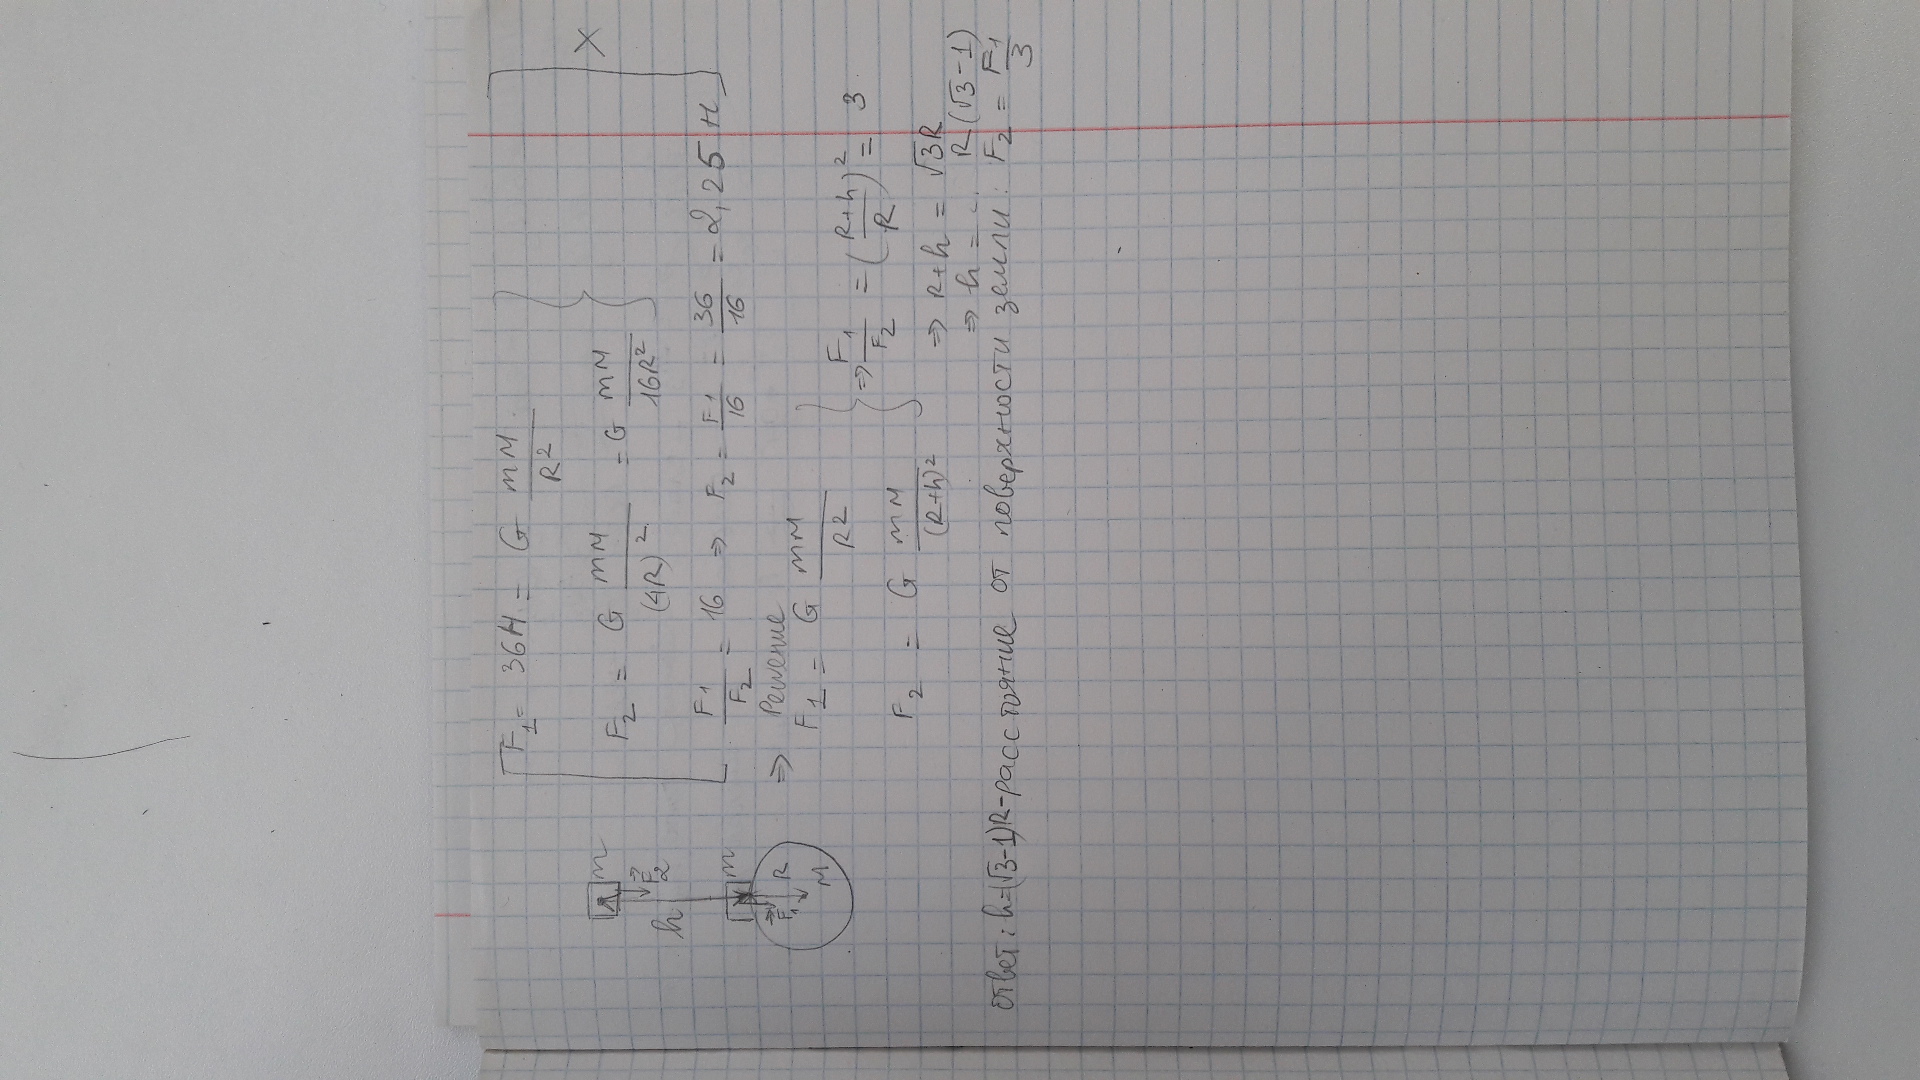 F₁ = 36Н = G mM/R²
F₂ = G mM/(4R)² = G mM/16R²
X
F₁/F₂ = 16 ⇒ F₂ = F₁/16 = 36/16 = 2,25 Н
⇒ Решение
F₁ = G mM/R²
F₂ = G mM/(R+h)²
⇒ F₁/F₂ = ((R+h)/R)² = 3
⇒ R+h = √3R
⇒ h = R(√3-1)
m
F₂
h
m
F₁
R
M
ответ: h=(√3-1)R-расстояние от поверхности земли: F₂ = F₁/3